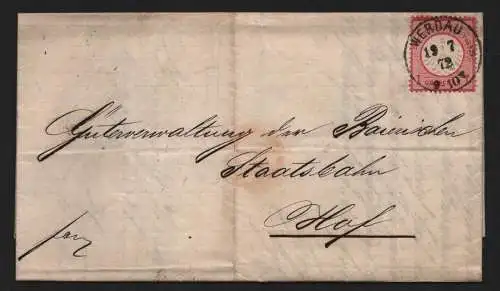 WERDAU
19 7
72
9-10V
Güterverwaltung der Baierischen
Staatsbahn
Hof